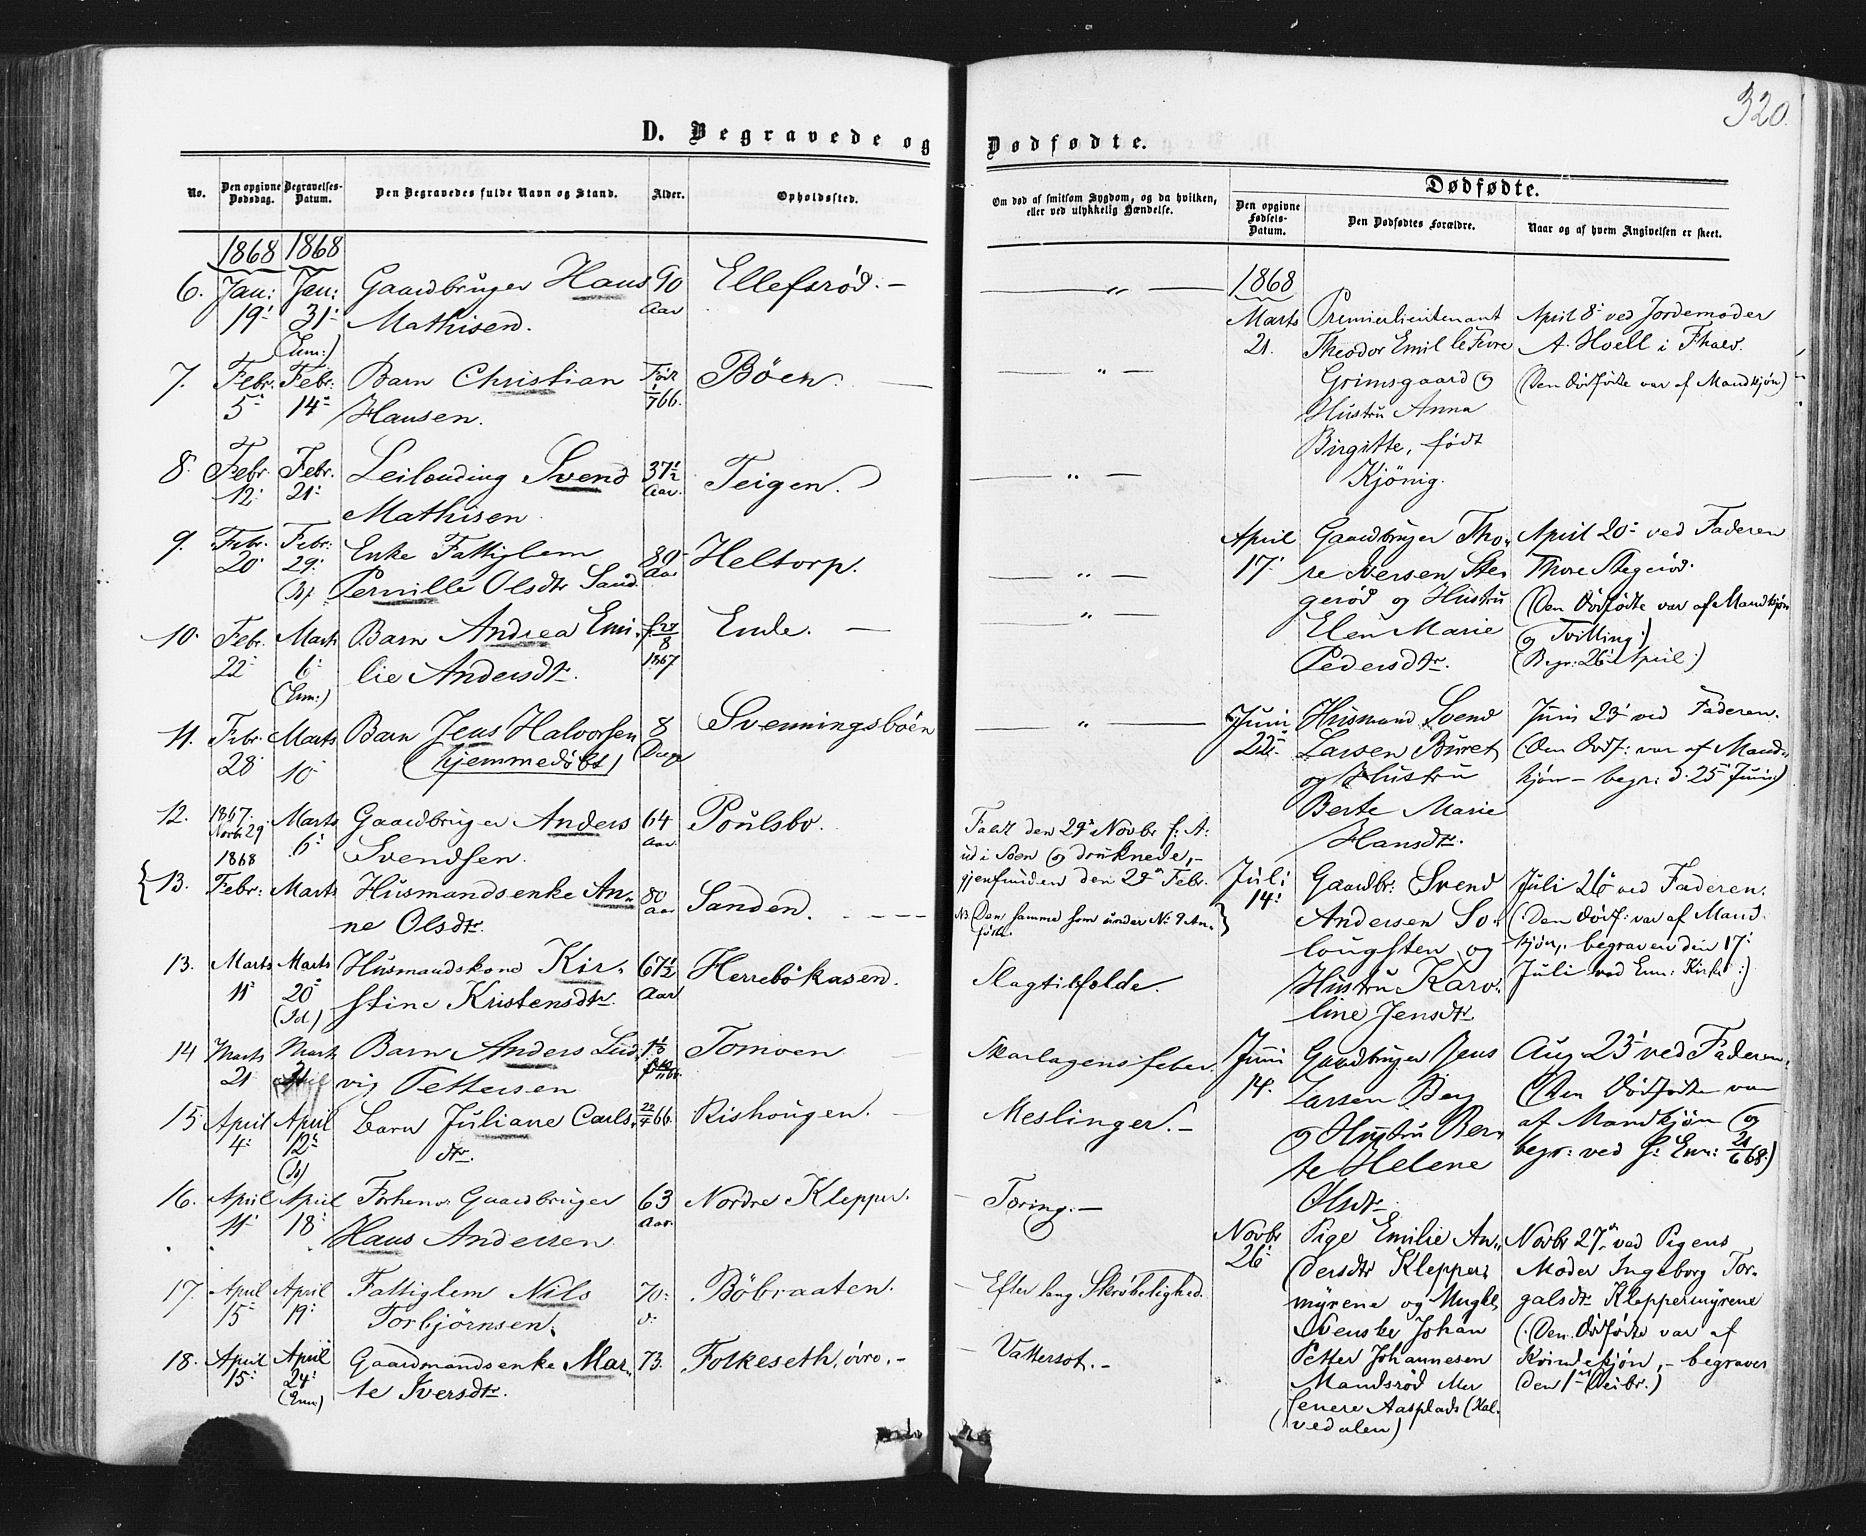 320.
D. Begravede og
Dødfødte.
No.
Den opgivne Dødsdag.
Begravelses-Datum.
Den Begravedes fulde Navn og Stand.
Alder.
Opholdssted.
Om død af smitsom Sygdom, og da hvilken,
eller ved ulykkelig Hændelse.
Dødfødte.
Den opgivne Fødsels-Datum.
Den Dødfødtes Forældre.
Naar og af hvem Angivelsen er skeet.
1868 1868
6. Jan: 19' Jan: 31' (Enn:) Gaardbruger Hans 90 Aar Ellefsrød. — — " —
Mathisen.
7. Febr. 5' Febr: 14' Barn Christian Født /766. Böen. — — " —
Hansen.
8. Febr. 12' Febr. 21' Leilænding Svend 37½ Aar. Teigen. — " —
Mathisen
9. Febr. 20' Febr: 29' Enke Fattiglem 80 Aar Heltorp. — " —
Pernille Olsdtr Sand
10. Febr. 22' Marts 6' (Enn:) Barn Andrea Emi- f. 27/8 1867 Ende. — — " —
lie Andersdtr.
11. Febr. 28' Marts 10' Barn Jens Halvorsen 8 Dage Svenningsböen — " —
(hjemmedøbt)
12. 1867. Novbr 29 Marts 6' Gaardbruger Anders 64 Aar. Poulsbo. Faldt den 29' Novbr f: A:
Svendsen. ud i Søen og druknede, —
gjenfunden den 29' Febr.
13. 1868 Febr: Marts Husmandsenke An- 80 Aar Sanden. — — — NB Den samme som under No 9 An-
ne Olsdtr. ført.
13. Marts 11' Marts 20' (Id.) Husmandskone Kir- 67½ Aar Herrebøkasen. Slagtilfælde.
stine Kristensdtr.
14 Marts 21 Marts 31 Barn Anders Lud- Tomoen Skarlagensfeber.
vig Pettersen
15 April 4' April 12' Barn Juliane Carls- 22/4 66. Rishougen. — Meslinger. —
dtr.
16. April 11' April 18' Forhenv. Gaardbruger 63 Aar. Nordre Klepper. — Tæring. —
Hans Andersen
17. April 15' April 19' Fattiglem Nils 70 Böbraaten. — Efter lang Skrøbelighed.
Torbjørnsen.
18. April 15' April 24' (Enn) Gaardmandsenke Mar- 73. Folkeseth, övre. — — Vattersot. —
te Iversdtr.
1868
Marts 21. Premierlieutenant April 8' ved Jordemoder
Theodor Emil le Fevre A. Hvell i Fhald.
Grimsgaard og (Den Dødfødte var af Mandkjøn)
Hustru Anna
Birgitte, født
Kjönig.
April 17' Gaardbruger Tho- April 20' ved Faderen
re Iversen Ste- Thore Stegerød.
gerød og Hustru (Den Dødfødte var af Mandkjøn
Elen Marie og Tvilling.)
Pedersdtr. (Begr: 26' April)
Juni 22' Husmand Svend Juni 23' ved Faderen.
Larsen Buret (Den Dødf: var af Mand-
og Hustru kjøn — begr: d. 25' Juni)
Berte Marie
Hansdtr.
Juli 14' Gaardbr: Svend Juli 26' ved Faderen.
Andersen So- (Den Dødf: var af Mand-
lougsten og kjøn, begraven den 17'
Hustru Karo- Juli ved Enn: Kirke)
line Jensdtr.
Juni 14. Gaardbruger Jens Aug 23' ved Faderen
Larsen Berg (Den Dødfødte var
og Hustru Ber- af Mandkjøn og
te Helene begr: ved Enn: 21/6 68)
Olsdtr.
Novbr 26' Pige Emilie An- Novbr 27' ved Pigens
dersdtr Klepper- Moder Ingeborg Tor-
myrene og Ungkl. galsdtr Kleppermyrene
Svenske Johan (Den Dødfødte var af
Petter Johannesen Kvindekjøn, — begraven
Mandsrød eller den 1' Decbr.)
senere Aasplads (Kal-
vedalen)